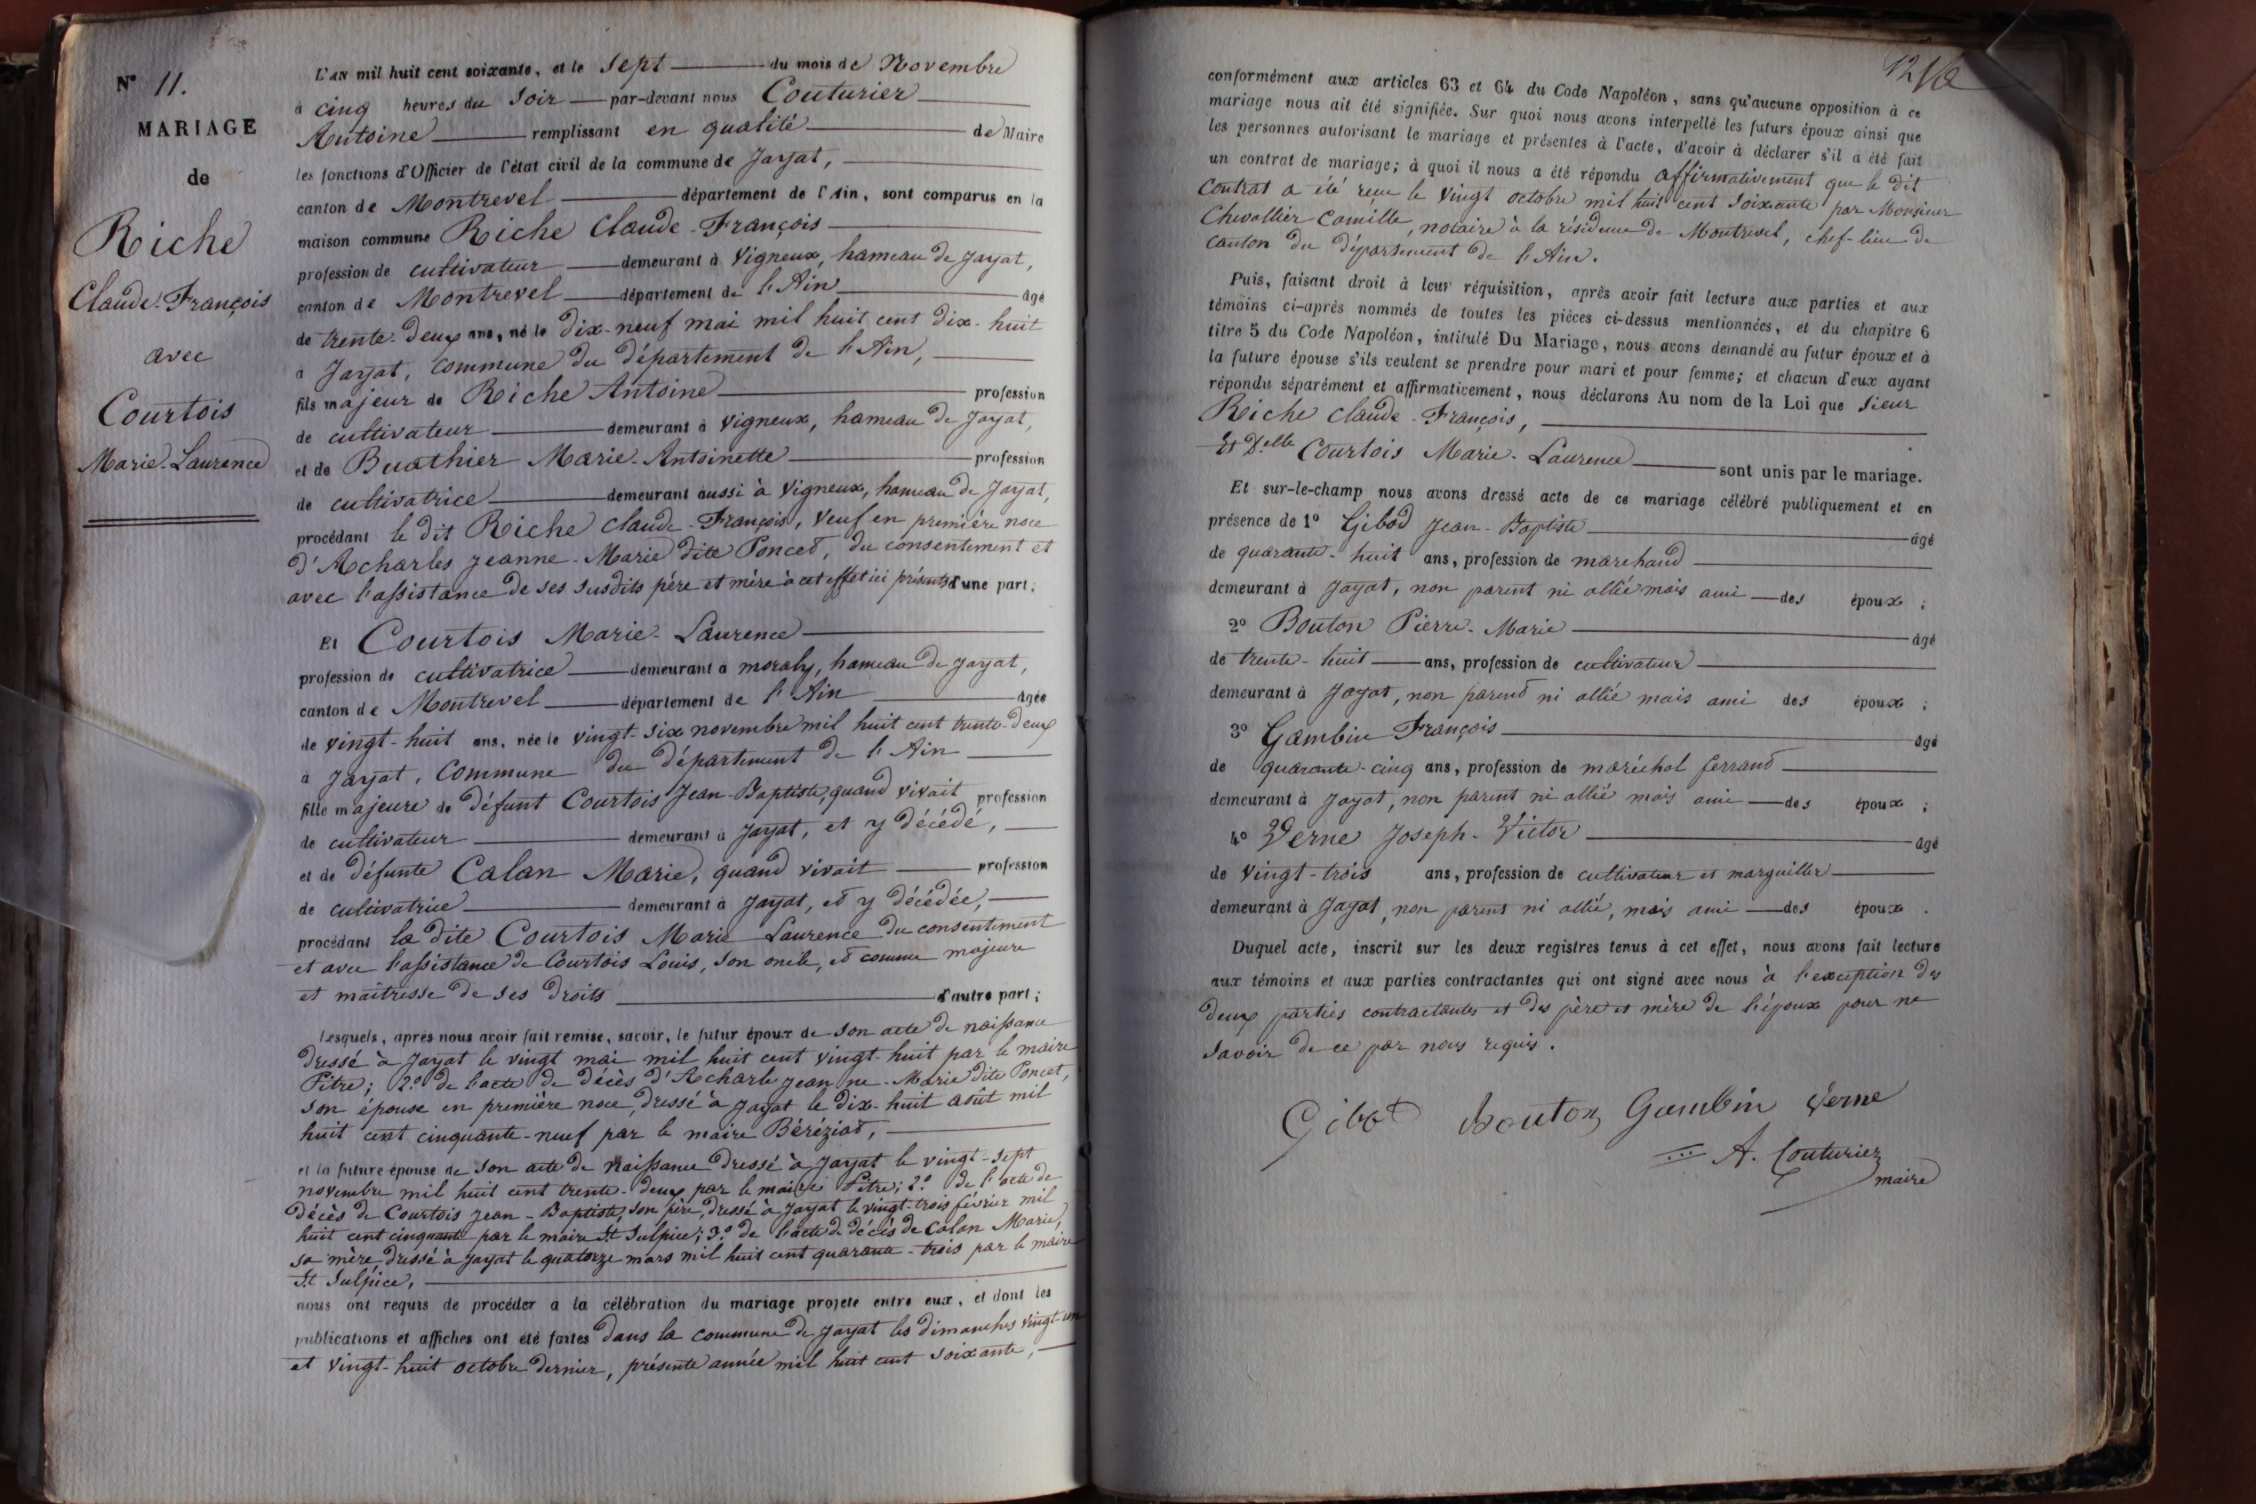 N° 11.
MARIAGE
de
Riche
Claude-François
avec
Courtois
Marie-Laurence
L'AN mil huit cent soixante, et le sept du mois de Novembre
à cinq heures du soir par-devant nous Couturier
Antoine remplissant en qualité de Maire
les fonctions d'Officier de l'état civil de la commune de Jayat,
canton de Montrevel département de l'Ain, sont comparus en la
maison commune Riche Claude-François
profession de cultivateur demeurant à Vigneux, hameau de Jayat,
canton de Montrevel département de l'Ain âgé
de trente-deux ans, né le dix-neuf mai mil huit cent dix-huit
à Jayat, commune du département de l'Ain,
fils majeur de Riche Antoine profession
de cultivateur demeurant à Vigneux, hameau de Jayat,
et de Buathier Marie-Antoinette profession
de cultivatrice demeurant aussi à Vigneux, hameau de Jayat,
procédant le dit Riche Claude-François, veuf en première noce
d'Acharles Jeanne-Marie dite Poncet, du consentement et
avec l'assistance de ses susdits père et mère à cet effet ici présents d'une part;
Et Courtois Marie-Laurence
profession de cultivatrice demeurant à moraly, hameau de Jayat,
canton de Montrevel département de l'Ain âgée
de vingt-huit ans, née le vingt-six novembre mil huit cent trente-deux
à Jayat, commune du département de l'Ain
fille majeure de défunt Courtois Jean-Baptiste, quand vivait profession
de cultivateur demeurant à Jayat, et y décédé,
et de défunte Calan Marie, quand vivait profession
de cultivatrice demeurant à Jayat, et y décédée,
procédant la dite Courtois Marie Laurence du consentement
et avec l'assistance de Courtois Louis, son oncle, et comme majeure
et maîtresse de ses droits d'autre part;
Lesquels, après nous avoir fait remise, savoir, le futur époux de son acte de naissance
dressé à Jayat le vingt mai mil huit cent vingt-huit par le maire
Pitre; 2° de l'acte de décès d'Acharle Jeanne-Marie dite Poncet,
son épouse en première noce, dressé à Jayat le dix-huit août mil
huit cent cinquante-neuf par le maire Béréziat,
et la future épouse de son acte de naissance dressé à Jayat le vingt-sept
novembre mil huit cent trente-deux par le maire Pitre; 2° de l'acte de
décès de Courtois Jean-Baptiste, son père, dressé à Jayat le vingt-trois février mil
huit cent cinquante par le maire St Sulpice; 3° de l'acte de décès de Calan Marie,
sa mère, dressé à Jayat le quatorze mars mil huit cent quarante-trois par le maire
St Sulpice,
nous ont requis de procéder à la célébration du mariage projeté entre eux, et dont les
publications et affiches ont été faites dans la commune de Jayat les dimanches vingt-un
et vingt-huit octobre dernier, présente année mil huit cent soixante,
12
conformément aux articles 63 et 64 du Code Napoléon, sans qu'aucune opposition à ce
mariage nous ait été signifiée. Sur quoi nous avons interpellé les futurs époux ainsi que
les personnes autorisant le mariage et présentes à l'acte, d'avoir à déclarer s'il a été fait
un contrat de mariage; à quoi il nous a été répondu affirmativement que le dit
contrat a été reçu le vingt octobre mil huit cent soixante par Monsieur
Chevallier Camille, notaire à la résidence de Montrevel, chef-lieu de
canton du département de l'Ain.
Puis, faisant droit à leur réquisition, après avoir fait lecture aux parties et aux
témoins ci-après nommés de toutes les pièces ci-dessus mentionnées, et du chapitre 6
titre 5 du Code Napoléon, intitulé Du Mariage, nous avons demandé au futur époux et à
la future épouse s'ils veulent se prendre pour mari et pour femme; et chacun d'eux ayant
répondu séparément et affirmativement, nous déclarons Au nom de la Loi que sieur
Riche Claude-François,
Et D.elle Courtois Marie-Laurence sont unis par le mariage.
Et sur-le-champ nous avons dressé acte de ce mariage célébré publiquement et en
présence de 1° Gibod Jean-Baptiste âgé
de quarante-huit ans, profession de marchand
demeurant à Jayat, non parent ni allié mais ami des époux;
2° Bouton Pierre-Marie âgé
de trente-huit ans, profession de cultivateur
demeurant à Jayat, non parent ni allié mais ami des époux;
3° Gambin François âgé
de quarante-cinq ans, profession de maréchal ferrand
demeurant à Jayat, non parent ni allié mais ami des époux;
4° Verne Joseph-Victor âgé
de vingt-trois ans, profession de cultivateur et marguiller
demeurant à Jayat, non parent ni allié, mais ami des époux.
Duquel acte, inscrit sur les deux registres tenus à cet effet, nous avons fait lecture
aux témoins et aux parties contractantes qui ont signé avec nous à l'exception des
deux parties contractantes et des père et mère de l'époux pour ne
savoir de ce par nous requis.
Gibot Bouton Gambin Verne
A. Couturier
maire